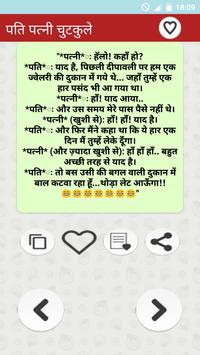 18:09
पति पत्नी चुटकुले
"*पत्नी*ः हॅलो! कहाँ हो?
*पति*ः याद है, पिछली दीपावली पर हम एक
ज्वेलरी की दुकान में गये थे... जहां तुम्हें एक
हार पसंद भी आ गया था।
*पत्नी*ः हाँ! याद आया..
*पति*ः और उस समय मेरे पास पैसे नहीं थे।
*पत्नी (खुशी से): हाँ! याद है।
*पति*ः और फिर मैंने कहा था कि ये हार एक
दिन मैं तुम्हें लेकर दूंगा।
*पत्नी* (और ज़्यादा खुशी से): हाँ हाँ हाँ.. बहुत
अच्छी तरह से याद है।
*पति*ः तो बस उसी की बगल वाली दुकान में
बाल कटवा रहा हूँ...थोड़ा लेट आऊँगा!!
😂😂😂😂😂😂"